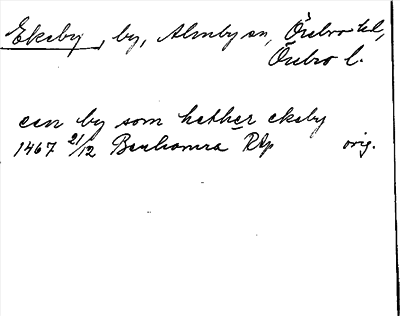 Ekeby, by, Almby sn, Örebro hd,
Örebro l.
een by som hether ekeby
1467 21/12 Benhamra Rdp orig.